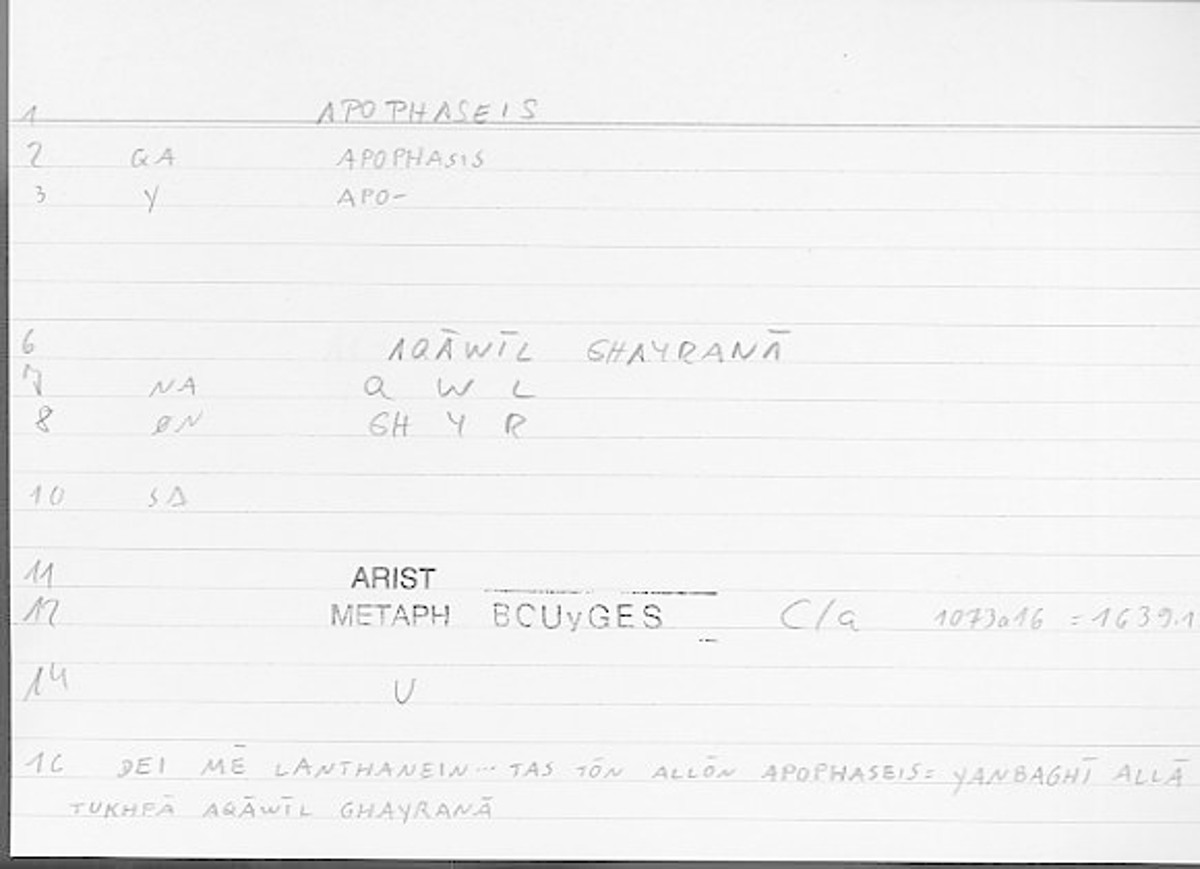 1 APOPHASEIS
2 QA APOPHASIS
3 Y APO-
6 AQĀWĪL GHAYRANĀ
7 NA Q W L
8 ØN GH Y R
10 SΔ
11 ARIST
12 METAPH BCUyGES C/a 1073a16 = 1639.1
14 U
16 DEI MĒ LANTHANEIN... TAS TŌN ALLŌN APOPHASEIS = YANBAGHĪ ALLĀ
TUKHFĀ AQĀWĪL GHAYRANĀ